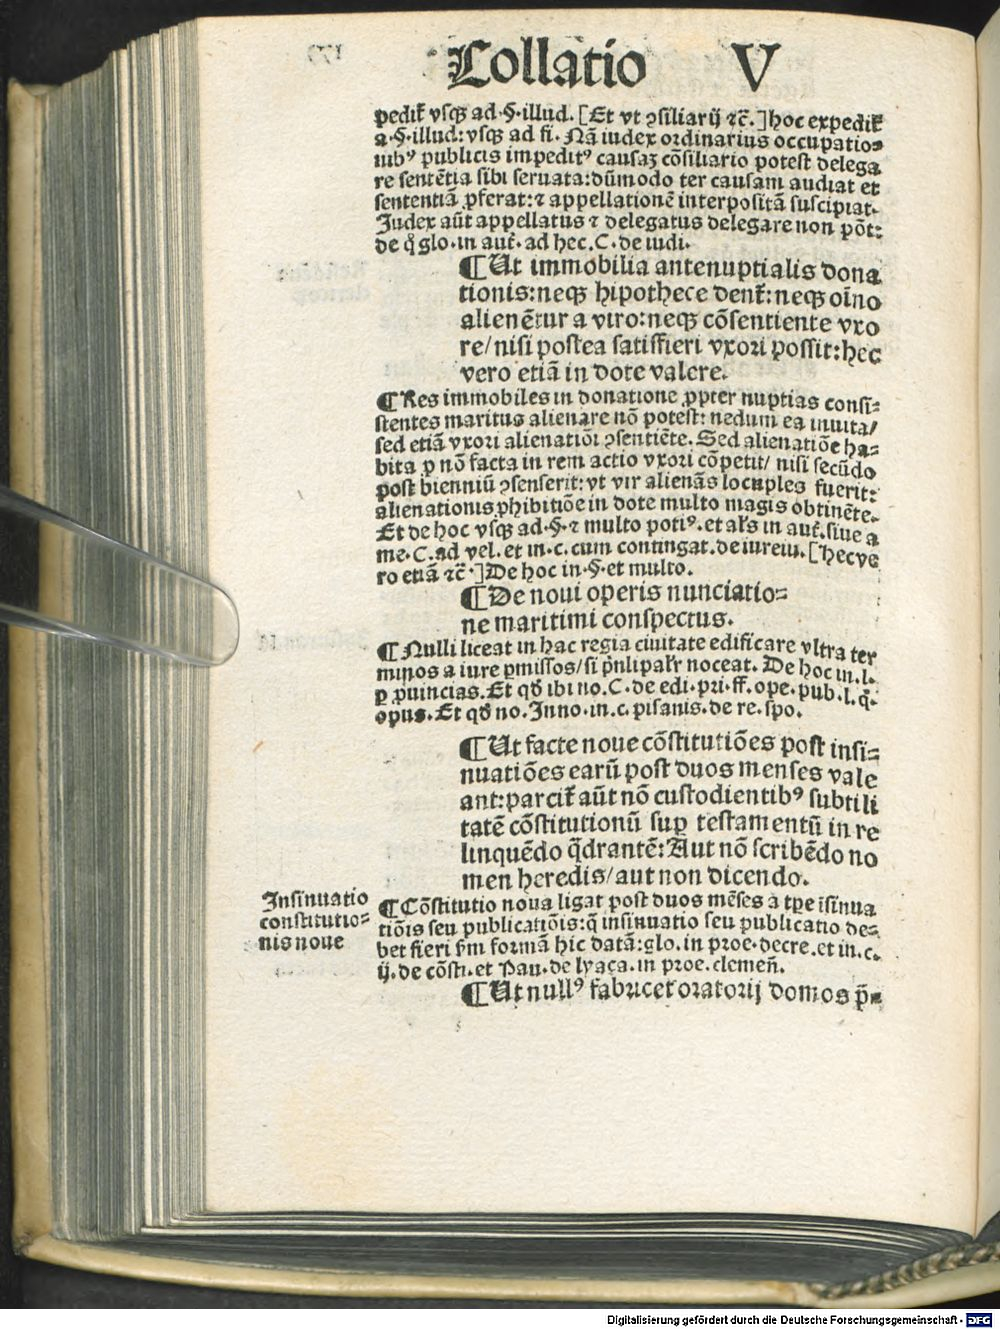 Collatio V
pedit̃ vsq̃ ad·§·illud. [Et vt ꝯsiliarij ꝛc̃.] hoc expedit̃
a·§·illud: vsq̃ ad fi. Nã iudex ordinarius occupatio⸗
nibꝰ publicis impeditꝰ causaȝ cõsiliario potest delega
re sentẽtia sibi seruata: dũmodo ter causam audiat et
sententiã ꝓferat: ꝛ appellationẽ interpositã suscipiat.
Iudex aũt appellatus ꝛ delegatus delegare non põt:
de q̃ glo. in aut̃. ad hec. C. de iudi.
¶ Ut immobilia antenuptialis dona
tionis: neqꝫ hipothece dent̃: neqꝫ oĩno
alienẽtur a viro: neqꝫ cõsentiente vxo
re/ nisi postea satisfieri vxori possit: hec
vero etiã in dote valere.
¶ Res immobiles in donatione ꝓpter nuptias consi⸗
stentes maritus alienare nõ potest: nedum ea inuita/
sed etiã vxori alienatiõi ꝯsentiẽte. Sed alienatiõe ha⸗
bita ꝓ nõ facta in rem actio vxori cõpetit/ nisi secũdo
post bienniũ ꝯsenserit: vt vir alienãs locuples fuerit:
alienationis ꝓhibitiõe in dote multo magis obtinẽte.
Et de hoc vsqꝫ ad·§·ꝛ multo potiꝰ. et al̃s in aut̃. siue a
me. C. ad vel. et in. c. cum contingat. de iureiu. [hec ve
ro etiã ꝛc̃.] De hoc in·§·et multo.
¶ De noui operis nunciatio⸗
ne maritimi conspectus.
¶ Nulli liceat in hac regia ciuitate edificare vltra ter
minos a iure ꝑmissos/ si p̃nlipal'r noceat. De hoc in. l.
ꝑ ꝓuincias. Et qð ibi no. C. de edi. pri. ff. ope. pub. l. q̃.
opus. Et qð no. Inno. in. c. pisanis. de re. spo.
¶ Ut facte noue cõstitutiões post insi⸗
nuatiões earũ post duos menses vale
ant: parcit̃ aũt nõ custodientibꝰ subtili
tatẽ cõstitutionũ suꝑ testamentũ in re
linquẽdo q̃drantẽ: Aut nõ scribẽdo no
men heredis/ aut non dicendo.
Insinuatio
constitutio⸗
nis noue
¶ Cõstitutio noua ligat post duos mẽses a tꝑe ĩsinua
tiõis seu publicatiõis: q̃ insinuatio seu publicatio de⸗
bet fieri ẜm formã hic datã: glo. in proe. decre. et in. c.
ij. de cõsti. et Pau. de lyaça. in proe. clemeñ.
¶ Ut nullꝰ fabricet oratorij domos p̃⸗
Digitalisierung gefördert durch die Deutsche Forschungsgemeinschaft - DFG